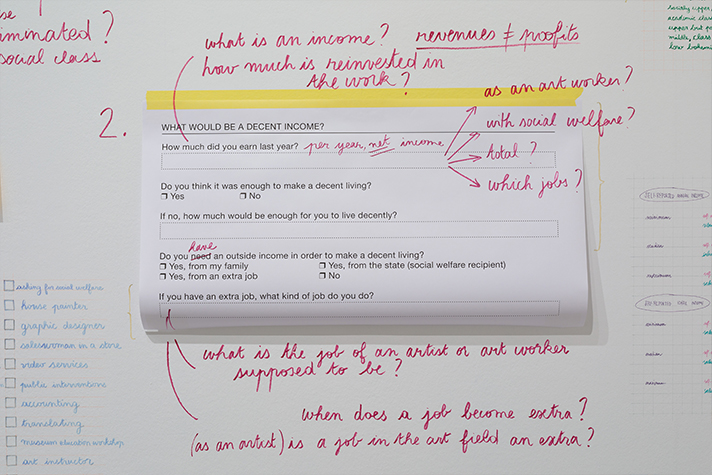 immated?
social class
what is an income? revenues ≠ profits
how much is reinvested in
the work?
society upper
academic class
middle, class
2.
WHAT WOULD BE A DECENT INCOME?
How much did you earn last year? per year, net income
as an art worker?
with social welfare?
total?
which jobs?
Do you think it was enough to make a decent living?
❒ Yes ❒ No
If no, how much would be enough for you to live decently?
have
Do you need an outside income in order to make a decent living?
❒ Yes, from my family ❒ Yes, from the state (social welfare recipient)
❒ Yes, from an extra job ❒ No
If you have an extra job, what kind of job do you do?
what is the job of an artist or art worker
supposed to be?
when does a job become extra?
(as an artist) is a job in the art field an extra?
asking for social welfare
house painter
graphic designer
saleswoman in a store
video services
public interventions
accounting
translating
museum education workshop
art instructor